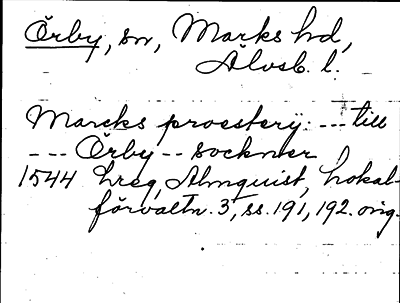 Örby, sn, Marks hd,
Älvsb. l.
Marcks proestery: --- till
--- Örby -- sockner
1544 hreg, Almquist, Lokal-
förvaltn. 3, ss. 191, 192. orig.